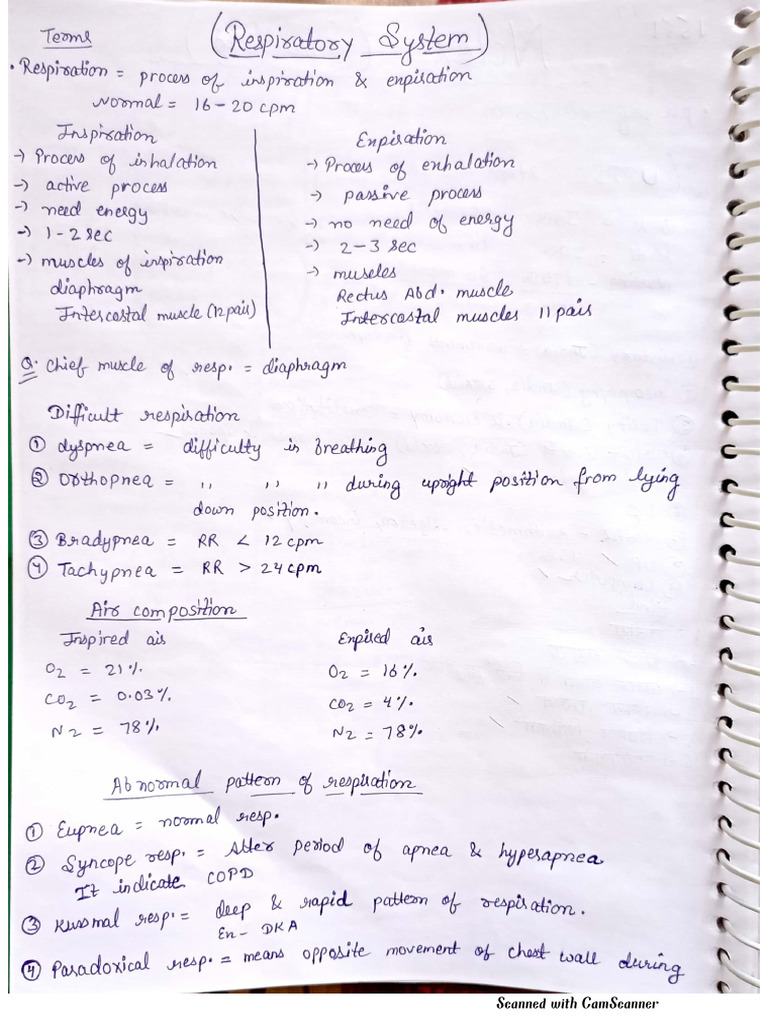 Terms
(Respiratory System)
• Respiration = process of inspiration & enpiration
Normal = 16-20 cpm
Inspiration
-> Process of inhalation
-> active process
-> need energy
-> 1-2 sec
-> muscles of inspiration
diaphragm
Intercostal muscle (12 pair)
Enpiration
-> Process of enhalation
-> passive process
-> no need of energy
-> 2-3 sec
-> muscles
Rectus Abd. muscle
Intercostal muscles 11 pair
Q. Chief muscle of resp. = diaphragm
Difficult respiration
① dyspnea = difficulty in breathing
② Orthopnea = ,, ,, ,, during upright position from lying
down position.
③ Bradypnea = RR < 12 cpm
④ Tachypnea = RR > 24 cpm
Air composition
Inspired air
O2 = 21%
CO2 = 0.03%
N2 = 78%
Enpired air
O2 = 16%.
CO2 = 4%.
N2 = 78%.
Abnormal pattern of respiration
① Eupnea = normal resp.
② Syncope resp. = Alter period of apnea & hyperapnea
It indicate COPD
③ Kussmal resp. = deep & rapid pattern of respiration.
En- DKA
④ Paradoxical resp. = means opposite movement of chest wall during
Scanned with CamScanner